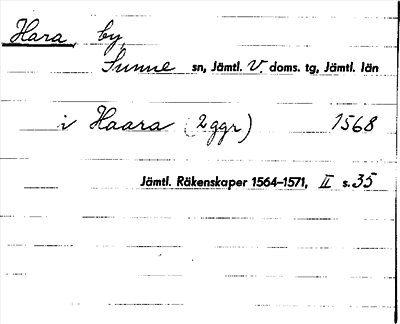 Hara, by,
Sunne sn, Jämtl. V. doms. tg, Jämtl. län
i Haara (2 ggr) 1568
Jämtl. Räkenskaper 1564–1571, II s. 35